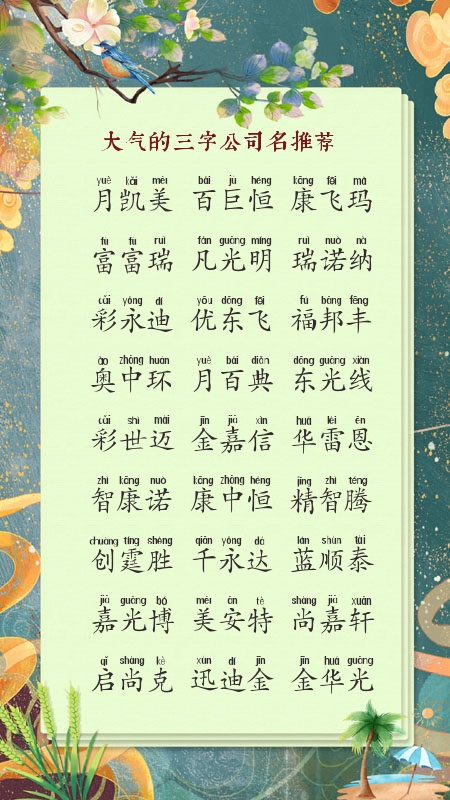 大气的三字公司名推荐
yuè kǎi měi bǎi jù héng kāng fēi mǎ
月凯美 百巨恒 康飞玛
fù fù ruì fán guāng míng ruì nuò nà
富富瑞 凡光明 瑞诺纳
cǎi yǒng dí yōu dōng fēi fú bāng fēng
彩永迪 优东飞 福邦丰
ào zhōng huán yuè bǎi diǎn dōng guāng xiàn
奥中环 月百典 东光线
cǎi shì mài jīn jiā xìn huá léi ēn
彩世迈 金嘉信 华雷恩
zhì kāng nuò kāng zhōng héng jīng zhì téng
智康诺 康中恒 精智腾
chuàng tíng shèng qiān yǒng dá lán shùn tài
创霆胜 千永达 蓝顺泰
jiā guāng bó měi ān tè shàng jiā xuān
嘉光博 美安特 尚嘉轩
qǐ shàng kè xùn dí jīn jīn huá guāng
启尚克 迅迪金 金华光